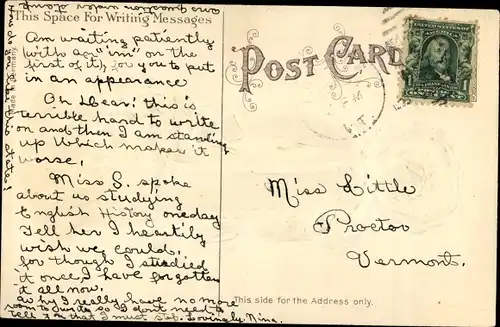 This Space For Writing Messages
Am waiting patiently
with an "im" on the
first of it, for you to put
in an appearance
Oh Dear! this is
terrible hard to write
on and then I am standing
up which makes it
worse.
Miss S. spoke
about us studying
English History one day
Tell her I heartily
wish we could,
for though I studied
it once, I have forgotten
it all now.
I really have no more
room to write so I don't need to
tell you that I must stop. Lovingly Nina.
POST CARD
VT.
UNITED STATES OF AMERICA
Miss Little
Proctor
Vermont.
This side for the Address only.